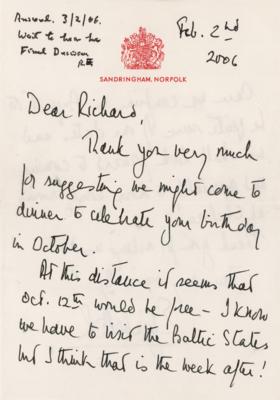 Answered. 3/2/06.
Wait to hear her
Final Decision
Feb. 2nd
2006
SANDRINGHAM, NORFOLK
Dear Richard,
Thank you very much
for suggesting we might come to
dinner to celebrate your birthday
in October.
At this distance it seems that
Oct. 12th would be free - I know
we have to visit the Baltic States
but I think that is the week after!